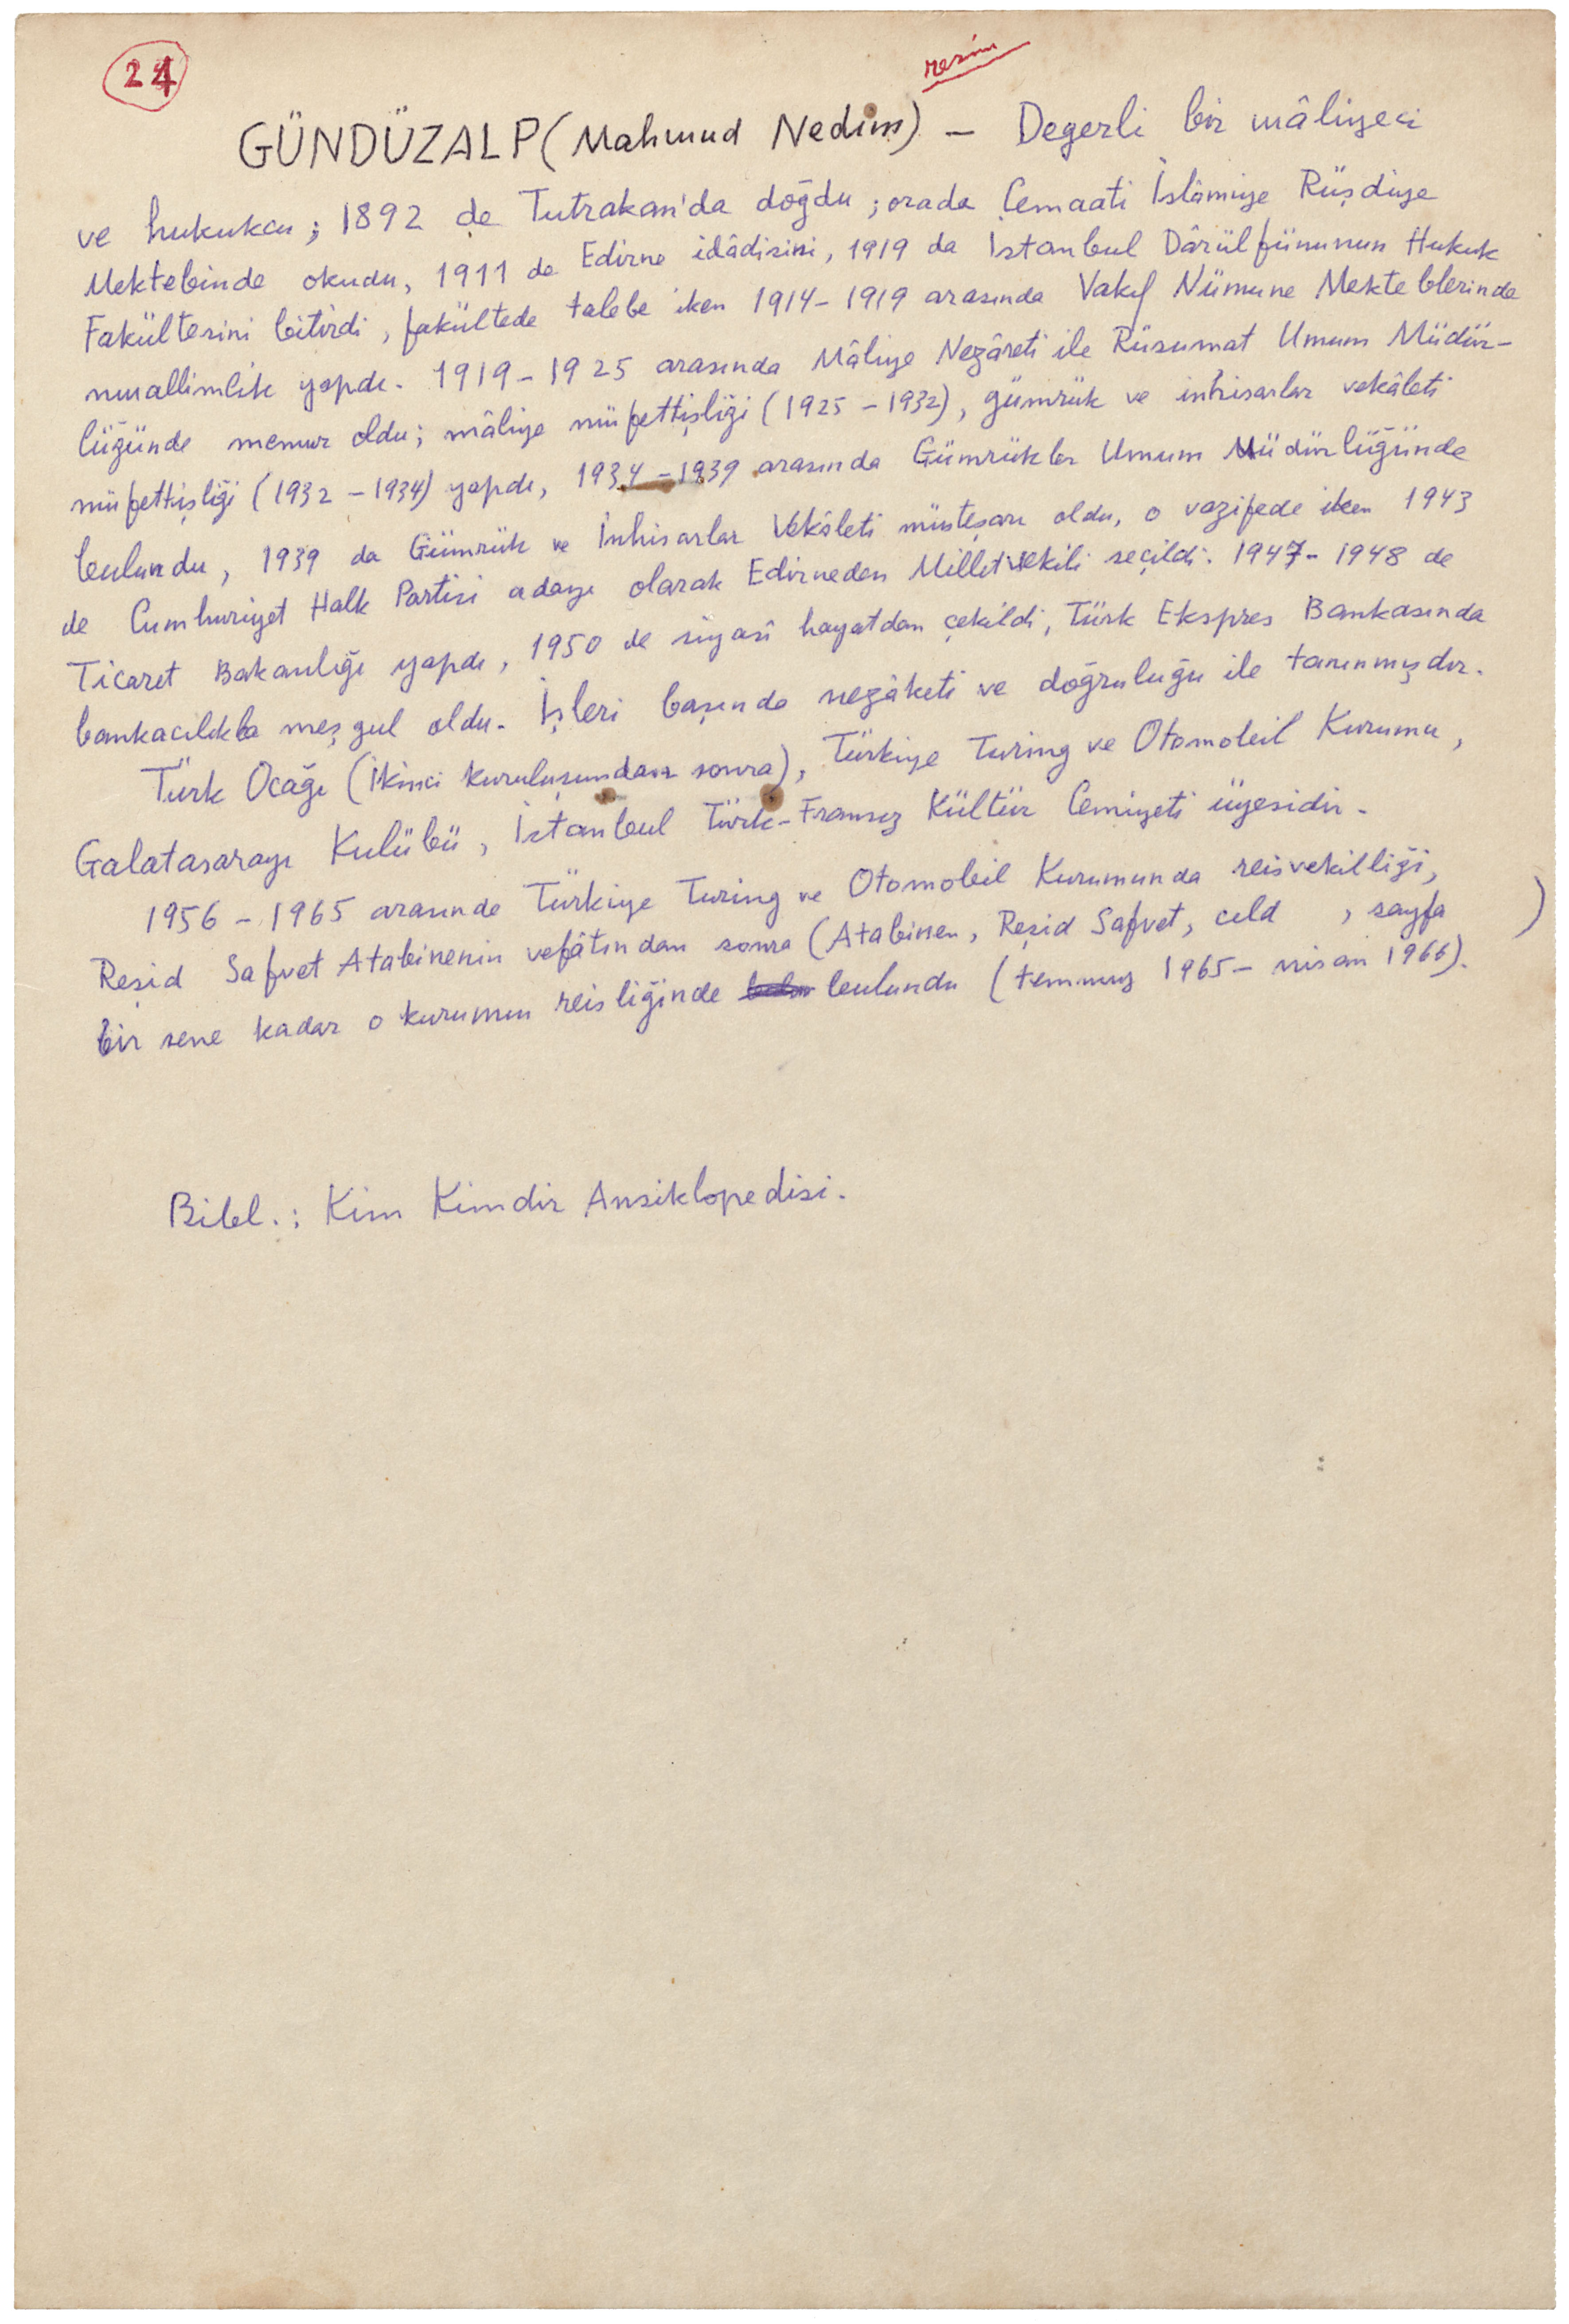 24
resim
GÜNDÜZALP (Mahmud Nedim) — Degerli bir mâliyeci
ve hukukcu; 1892 de Tutrakan'da doğdu; orada Cemaati İslâmiye Rüşdiye
Mektebinde okudu, 1911 de Edirne idâdisini, 1919 da İstanbul Dârülfünunun Hukuk
Fakültesini bitirdi, fakültede talebe iken 1914-1919 arasında Vakıf Nümune Mekteblerinde
muallimlik yapdı. 1919-1925 arasında Mâliye Nezâreti ile Rüsumat Umum Müdür-
lüğünde memur oldu; mâliye müfettişliği (1925-1932), gümrük ve inhisarlar vekâleti
müfettişliği (1932-1934) yapdı, 1934-1939 arasında Gümrükler Umum Müdürlüğünde
bulundu, 1939 da Gümrük ve İnhisarlar Vekâleti müsteşarı oldu, o vazifede iken 1943
de Cumhuriyet Halk Partisi adayı olarak Edirneden Milletvekili seçildi. 1947-1948 de
Ticaret Bakanlığı yapdı, 1950 de siyasî hayatdan çekildi, Türk Ekspres Bankasında
bankacılıkla meşgul oldu. İşleri başında nezâketi ve doğruluğu ile tanınmışdır.
Türk Ocağı (İkinci kuruluşundan sonra), Türkiye Turing ve Otomobil Kurumu,
Galatasarayı Kulübü, İstanbul Türk-Fransız Kültür Cemiyeti üyesidir.
1956-1965 arasında Türkiye Turing ve Otomobil Kurumunda reisvekilliği,
Reşid Safvet Atabinenin vefâtından sonra (Atabinen, Reşid Safvet, cild , sayfa )
bir sene kadar o kurumun reisliğinde bulundu (temmuz 1965- nisan 1966).
Bibl.: Kim Kimdir Ansiklopedisi.